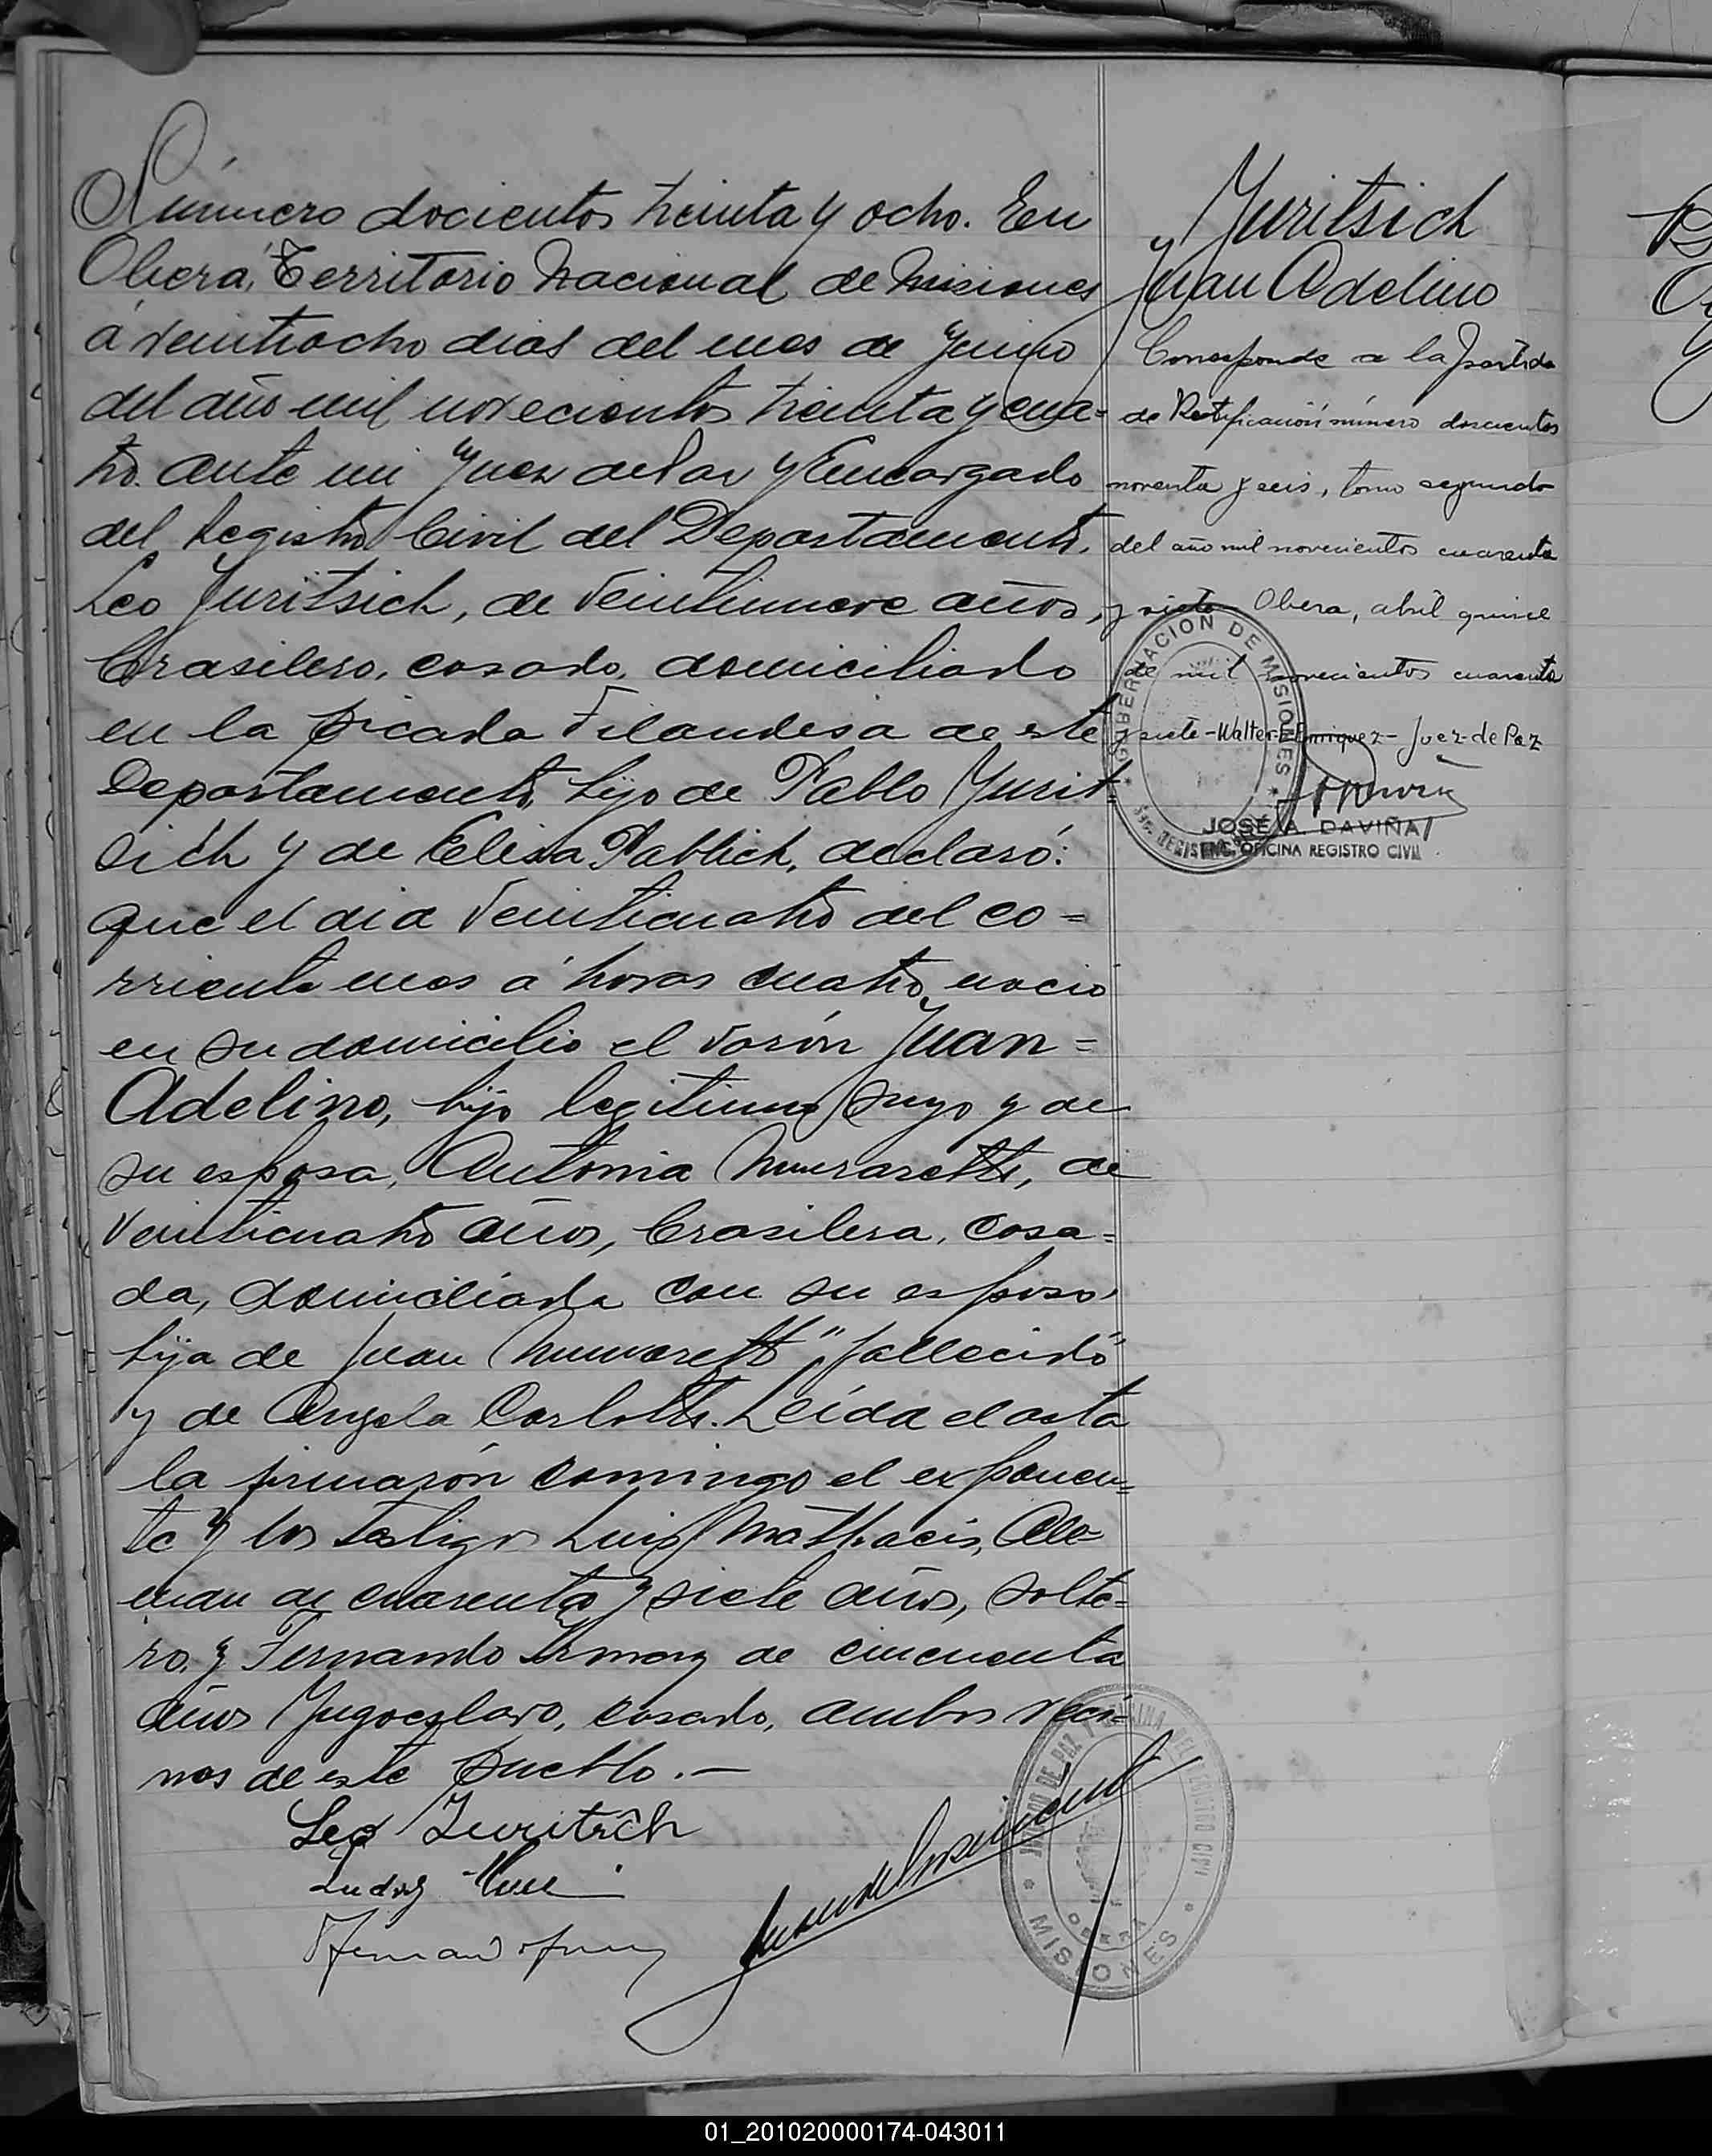 Número docientos treinta y ocho. En
Oberá, Territorio Nacional de Misiones
á veintiocho dias del mes de Junio
del año mil novecientos treinta y cua=
tro. ante mi Juez de Paz y Encargado
del Registro Civil del Departamento,
Leo Juritsich, de veintinueve años,
brasilero, casado, domiciliado
en la picada Filandesa de este
Departamento, hijo de Pablo Jurit=
sich y de Elisa Pablich, declaró:
que el dia veinticuatro del co=
rriente mes á horas cuatro, nacio
en su domicilio el varón Juan=
Adelino, hijo legitimo suyo y de
su esposa, Antonia de
veinticuatro años, brasilera, casa=
da, domiciliada con su esposo
hija de Juan "fallecido"
y de Angela Leída el acta
la firmarón comingo el exponen=
te y los testigos Luis Ale=
man de cuarenta y siete años, solte=
ro. y Fernando de cincuenta
años Jugoeslavo, casado, ambos veci=
nos de este pueblo.—
Leo Juritsich
Ludwig
Fernand
Juritsich
Juan Adelino
Corresponde a la partida
de Rectificación número doscientos
noventa y seis, tomo segundo
del año mil novecientos cuarenta
y siete Obera, abril quince
de mil novecientos cuarenta
y siete-Walter-E-Enriquez-Juez-de Paz
GOBERNACION DE MISIONES
JOSÉ A. DAVIÑA
ENC. OFICINA REGISTRO CIVIL
JUZGADO DE PAZ Y OFICINA DEL REGISTRO CIVIL
OBERA
MISIONES
01_201020000174-043011